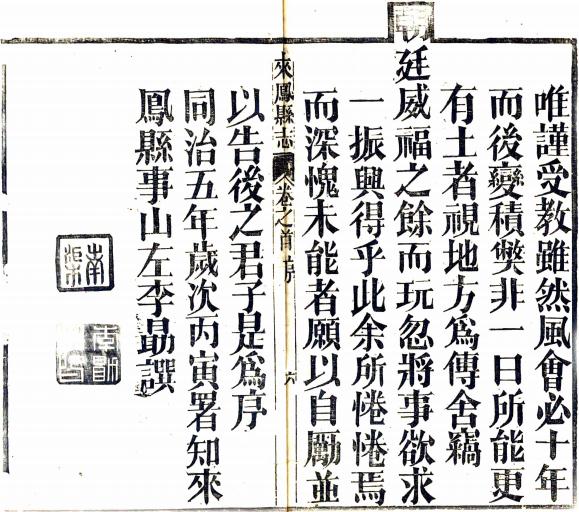 唯謹受教雖然風會必十年
而後變積獘非一日所能更
有土者視地方爲傳舍竊
朝廷威福之餘而玩忽將事欲求
一振興得乎此余所惓惓焉
而深愧未能者願以自勵並
來鳳縣志 卷之首 序 六
以告後之君子是爲序
同治五年歲次丙寅署知來
鳳縣事山左李勗譔
南渠